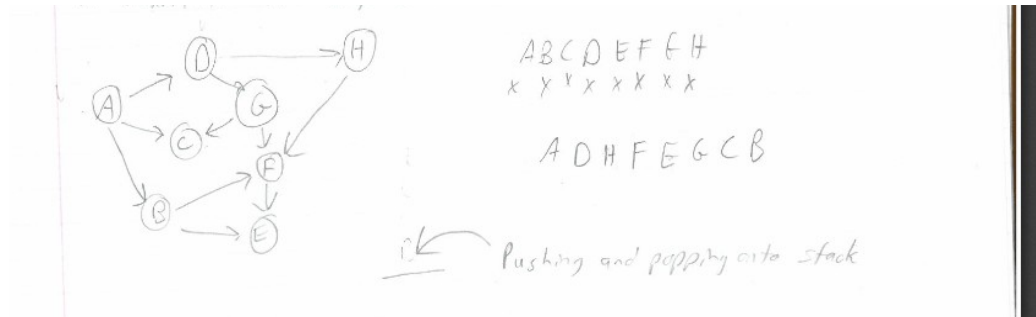 D
H
A
G
C
F
B
E
A B C D E F G H
x x x x x x x x
A D H F E G C B
B
Pushing and popping onto stack